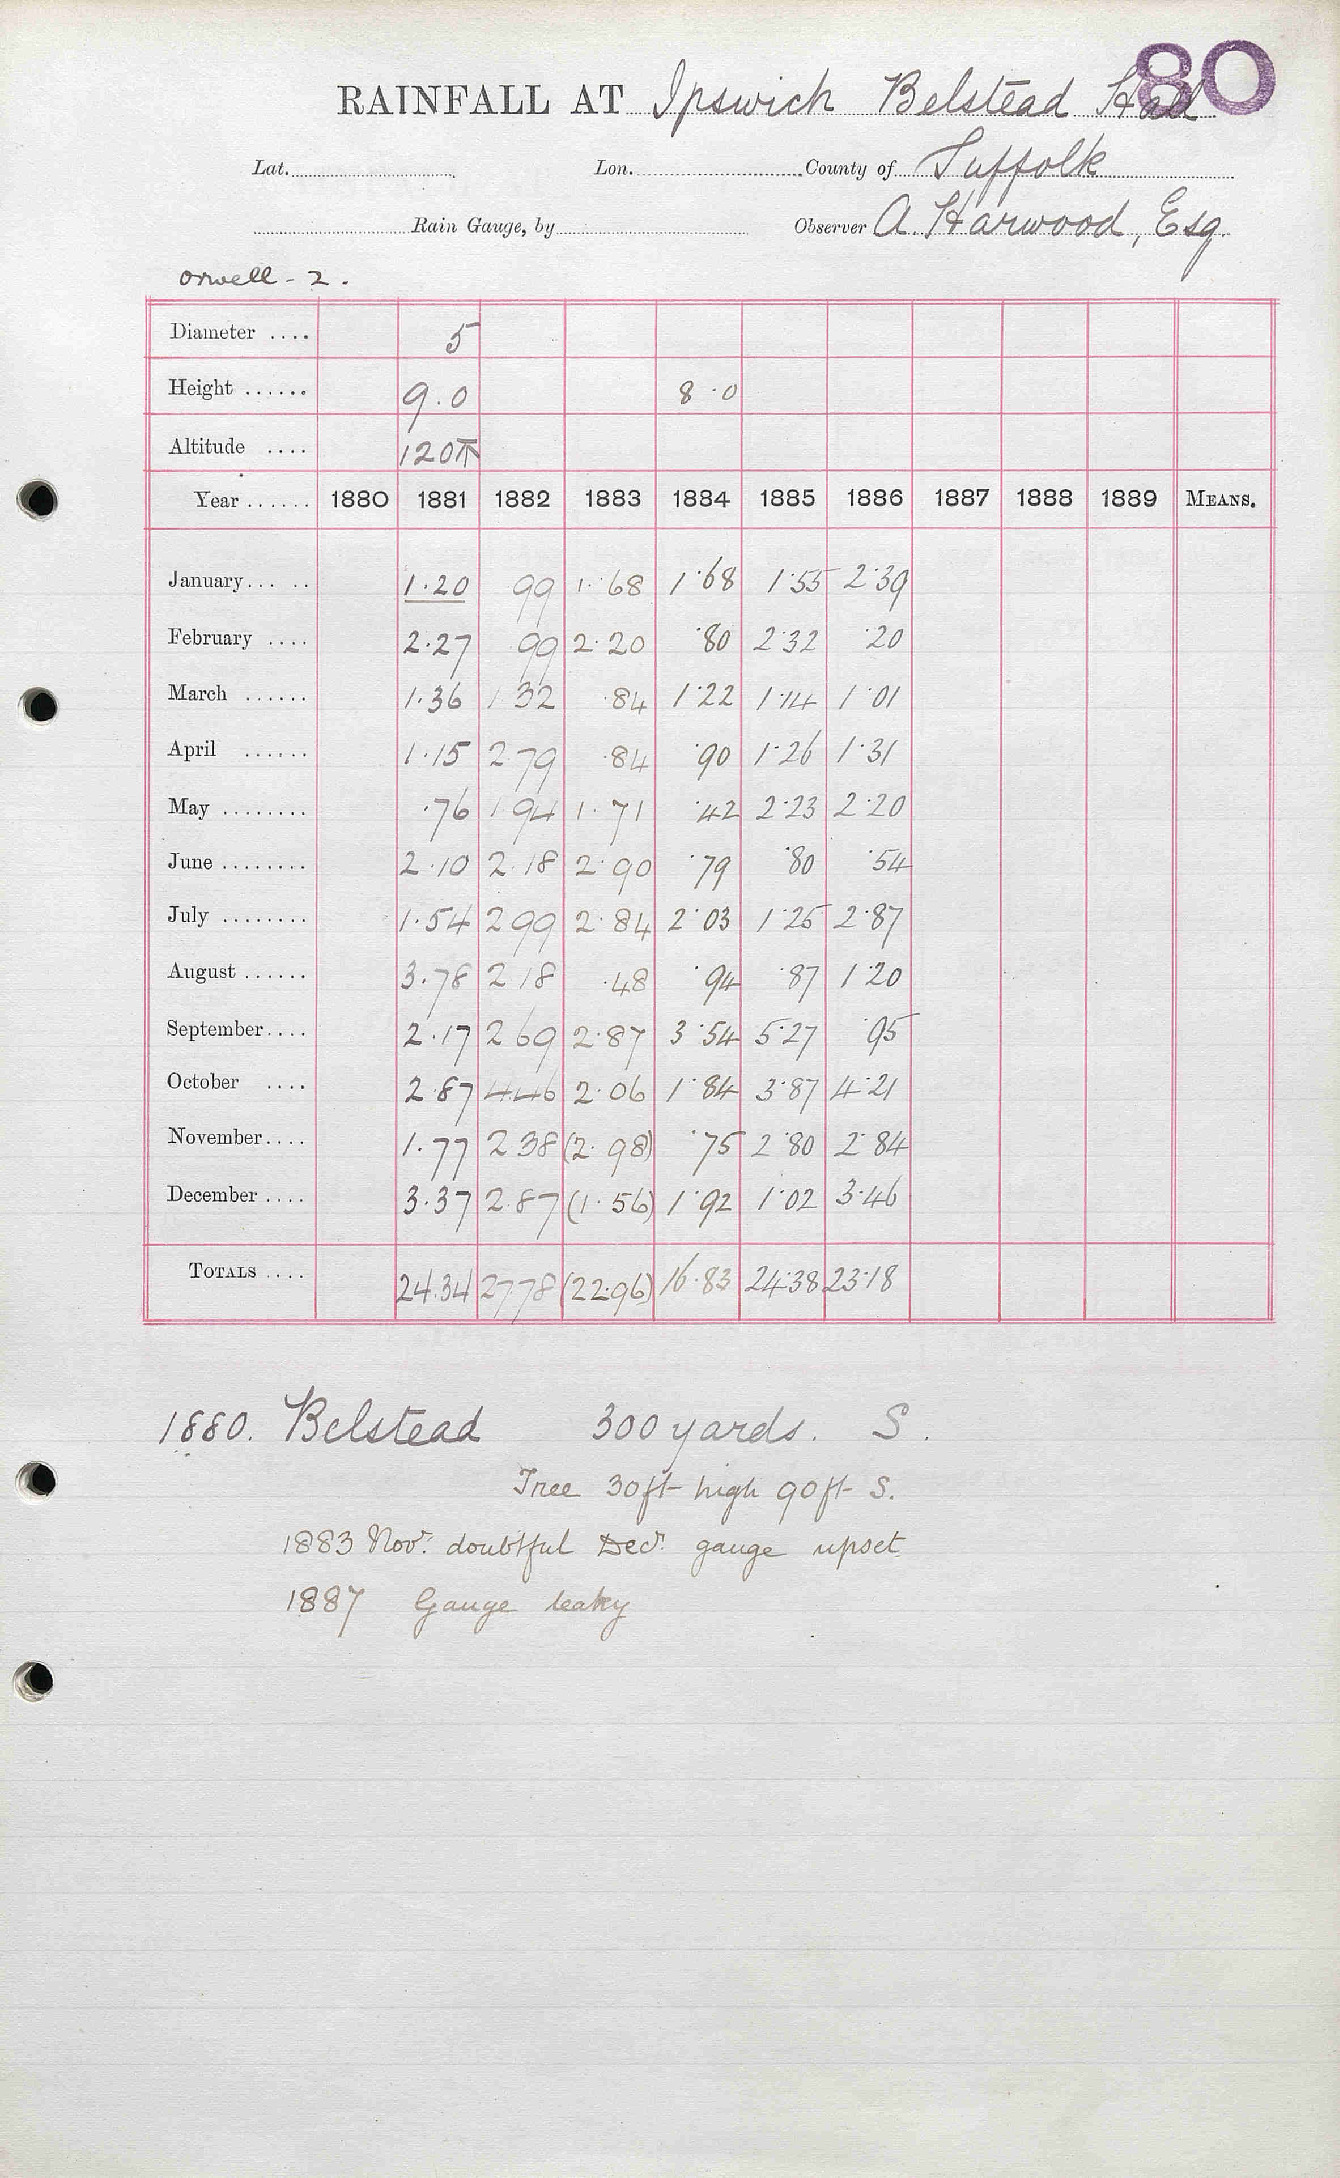 80
RAINFALL AT Ipswich Belstead Hall
Lat. Lon. County of Suffolk
Rain Gauge, by Observer A. Harwood, Esq.
Orwell - 2.
Diameter .... 5
Height ...... 9.0 8.0
Altitude .... 120
Year ...... 1880 1881 1882 1883 1884 1885 1886 1887 1888 1889 MEANS.
January ..... 1.20 99 1.68 1.68 1.55 2.39
February .... 2.27 99 2.20 .80 2.32 .20
March ...... 1.36 1 32 .84 1.22 1.14 1.01
April ...... 1.15 2 79 .84 .90 1.26 1.31
May ........ .76 1 94 1.71 .42 2.23 2.20
June ........ 2.10 2.18 2.90 .79 .80 .54
July ........ 1.54 2 99 2.84 2.03 1.25 2.87
August ...... 3.78 2 18 .48 .94 .87 1.20
September .... 2.17 2 69 2.87 3.54 5.27 .95
October .... 2.87 4.46 2.06 1.84 3.87 4.21
November .... 1.77 2 38 (2.98) .75 2.80 2.84
December .... 3.37 2.87 (1.56) 1.92 1.02 3.46
TOTALS .... 24.34 27.78 (22.96) 16.83 24.38 23.18
1880. Belstead 300 yards. S.
Tree 30ft high 90ft S.
1883 Novr. doubtful Decr. gauge upset
1887 Gauge leaky